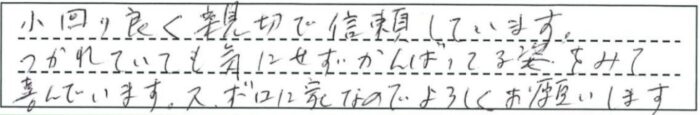 小回り良く親切で信頼しています。
つかれていても気にせずがんばってる姿をみて
喜んでいます。スボロに家なのでよろしくお願いします